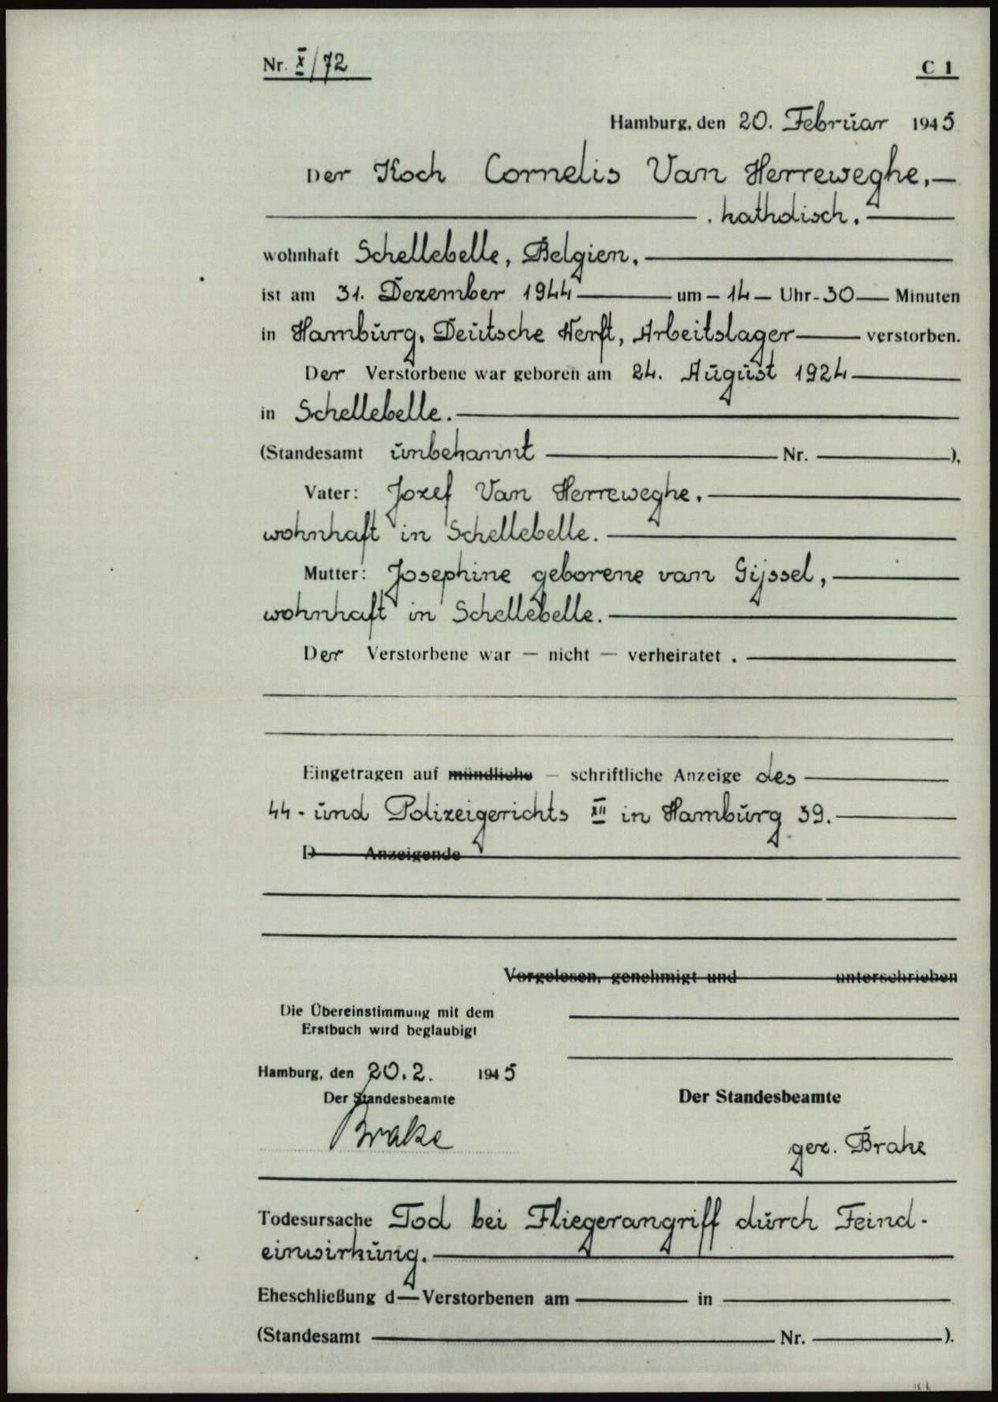 Nr. X/72
C 1
Hamburg, den 20. Februar 1945
Der Koch Cornelis Van Herreweghe,
, katholisch,
wohnhaft Schellebelle, Belgien,
ist am 31. Dezember 1944 um 14 Uhr 30 Minuten
in Hamburg, Deutsche Werft, Arbeitslager verstorben.
Der Verstorbene war geboren am 24. August 1924
in Schellebelle.
(Standesamt unbekannt Nr. ),
Vater: Jozef Van Herreweghe,
wohnhaft in Schellebelle.
Mutter: Josephine geborene van Gijssel,
wohnhaft in Schellebelle.
Der Verstorbene war — nicht — verheiratet.
Eingetragen auf mündliche — schriftliche Anzeige des
44- und Polizeigerichts XII in Hamburg 39.
D Anzeigende
Vorgelesen, genehmigt und unterschrieben
Die Übereinstimmung mit dem
Erstbuch wird beglaubigt
Hamburg, den 20.2. 1945
Der Standesbeamte
Der Standesbeamte
Brake
gez. Brake
Todesursache Tod bei Fliegerangriff durch Feind-
einwirkung.
Eheschließung d—Verstorbenen am in
(Standesamt Nr. ).